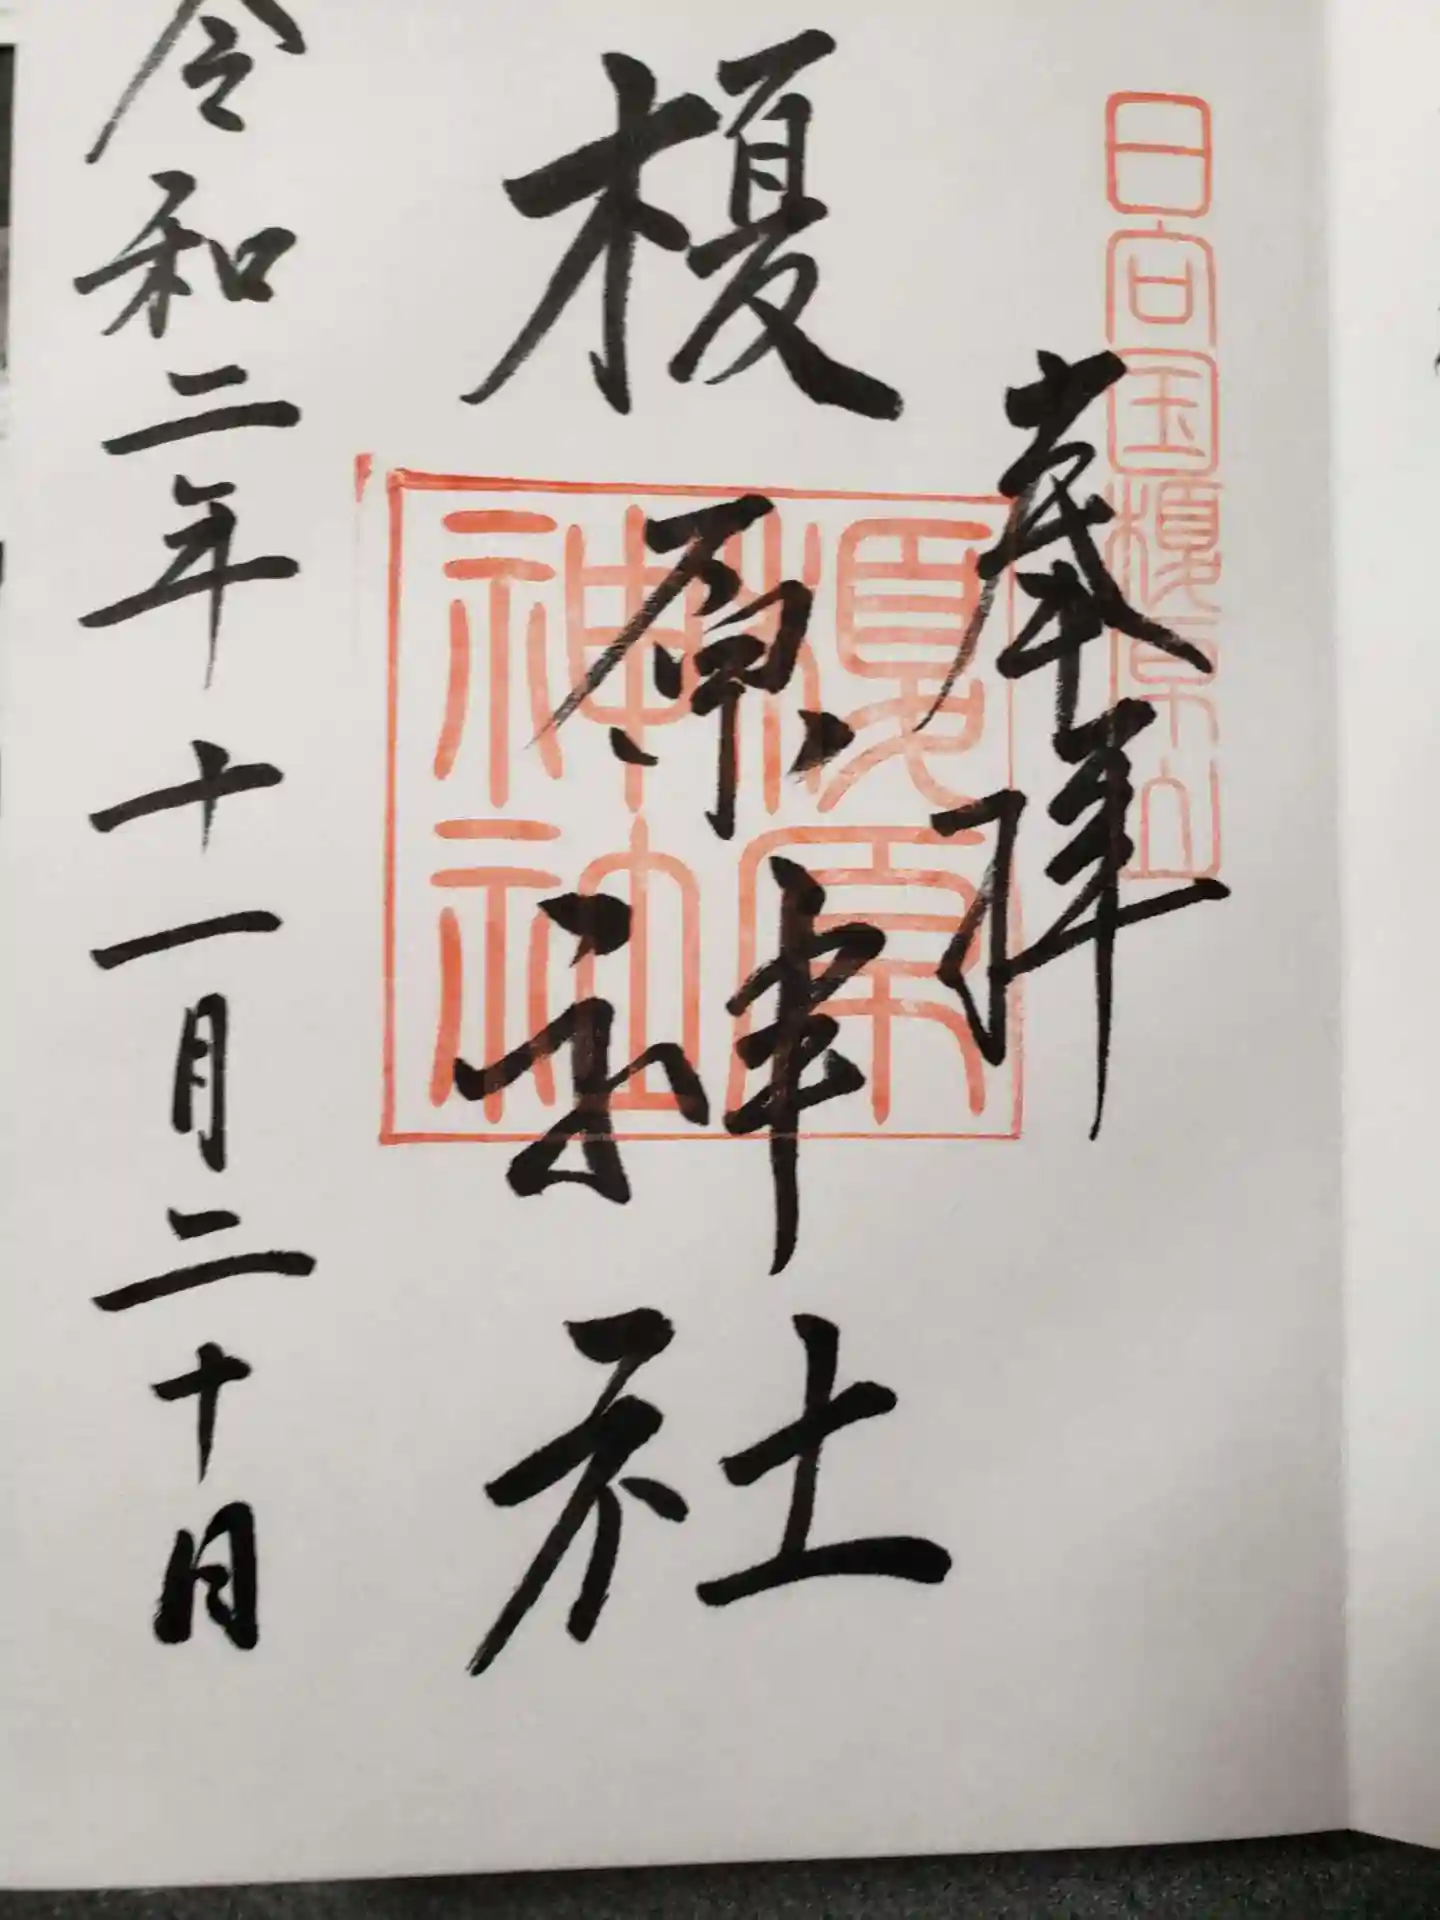 日向国榎原山
奉拝
榎原神社
榎原
神社
令和二年十一月二十日